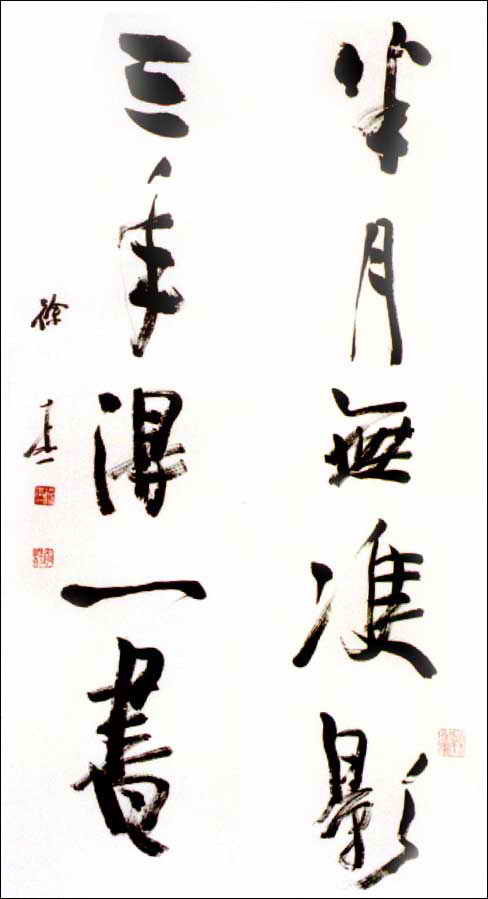 半月無雙影
三年得一書
徐